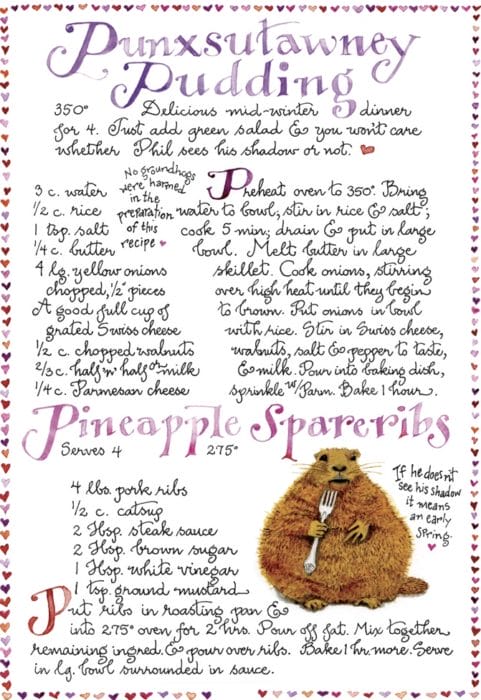 Punxsutawney
Pudding
350° Delicious mid-winter dinner
for 4. Just add green salad & you won't care
whether Phil sees his shadow or not.
No groundhogs
were harmed
in the
preparation
of this
recipe
3 c. water
1/2 c. rice
1 tsp. salt
1/4 c. butter
4 lg. yellow onions
chopped, 1/2" pieces
A good full cup of
grated Swiss cheese
1/2 c. chopped walnuts
2/3 c. half 'n' half or milk
1/4 c. Parmesan cheese
Preheat oven to 350°. Bring
water to bowl, stir in rice & salt;
cook 5 min; drain & put in large
bowl. Melt butter in large
skillet. Cook onions, stirring
over high heat until they begin
to brown. Put onions in bowl
with rice. Stir in Swiss cheese,
walnuts, salt & pepper to taste,
& milk. Pour into baking dish,
sprinkle w/Parm. Bake 1 hour.
Pineapple Spareribs
Serves 4 275°
4 lbs. pork ribs
1/2 c. catsup
2 Tbsp. steak sauce
2 Tbsp. brown sugar
1 Tbsp. white vinegar
1 tsp. ground mustard
If he doesn't
see his shadow
it means
an early
Spring.
Put ribs in roasting pan &
into 275° oven for 2 hrs. Pour off fat. Mix together
remaining ingred. & pour over ribs. Bake 1 hr. more. Serve
in lg. bowl surrounded in sauce.